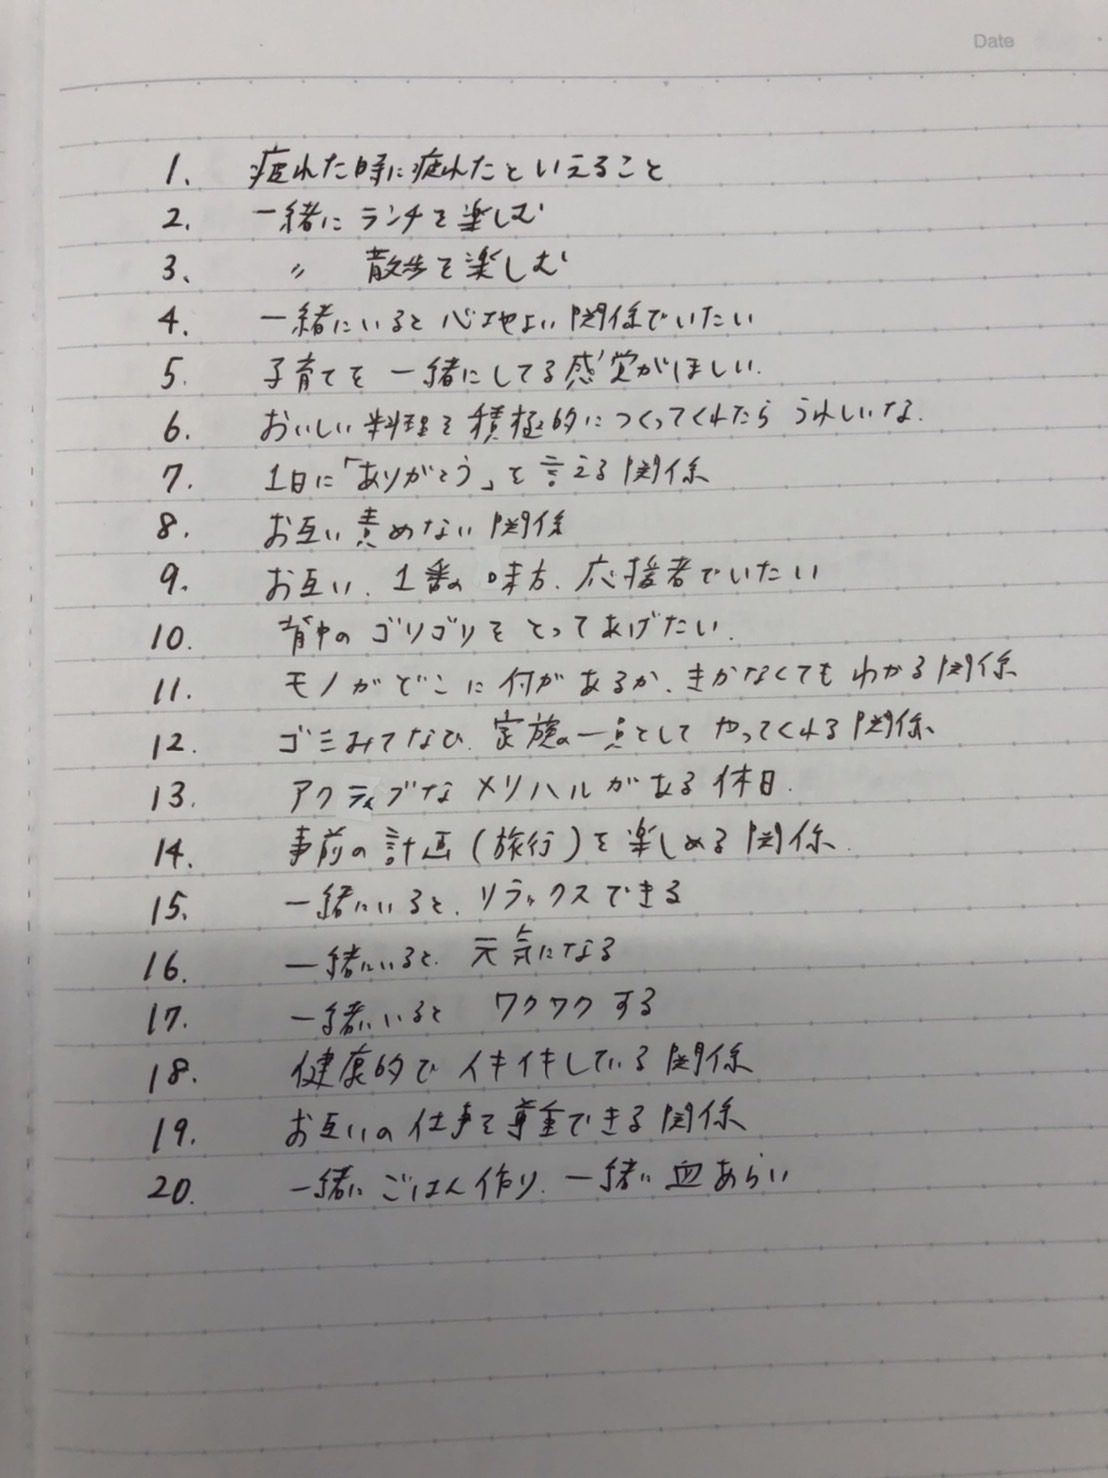 Date
1. 疲れた時に疲れたといえること
2. 一緒にランチを楽しむ
3. 〃 散歩を楽しむ
4. 一緒にいると心地よい関係でいたい
5. 子育てを一緒にしてる感覚がほしい.
6. おいしい料理を積極的につくってくれたらうれしいな.
7. 1日に「ありがとう」を言える関係
8. お互い責めない関係
9. お互い、1番の味方、応援者でいたい
10. 背中のゴリゴリをとってあげたい.
11. モノがどこに何があるか、きかなくてもわかる関係
12. ゴミみてなひ、家族の一点としてやってくれる関係、
13. アクティブなメリハルがある休日.
14. 事前の計画(旅行)を楽しめる関係.
15. 一緒にいると、リラックスできる
16. 一緒にいると、元気になる
17. 一緒にいると ワクワクする
18. 健康的でイキイキしている関係
19. お互いの仕事を尊重できる関係
20. 一緒にごはん作り、一緒に皿あらい